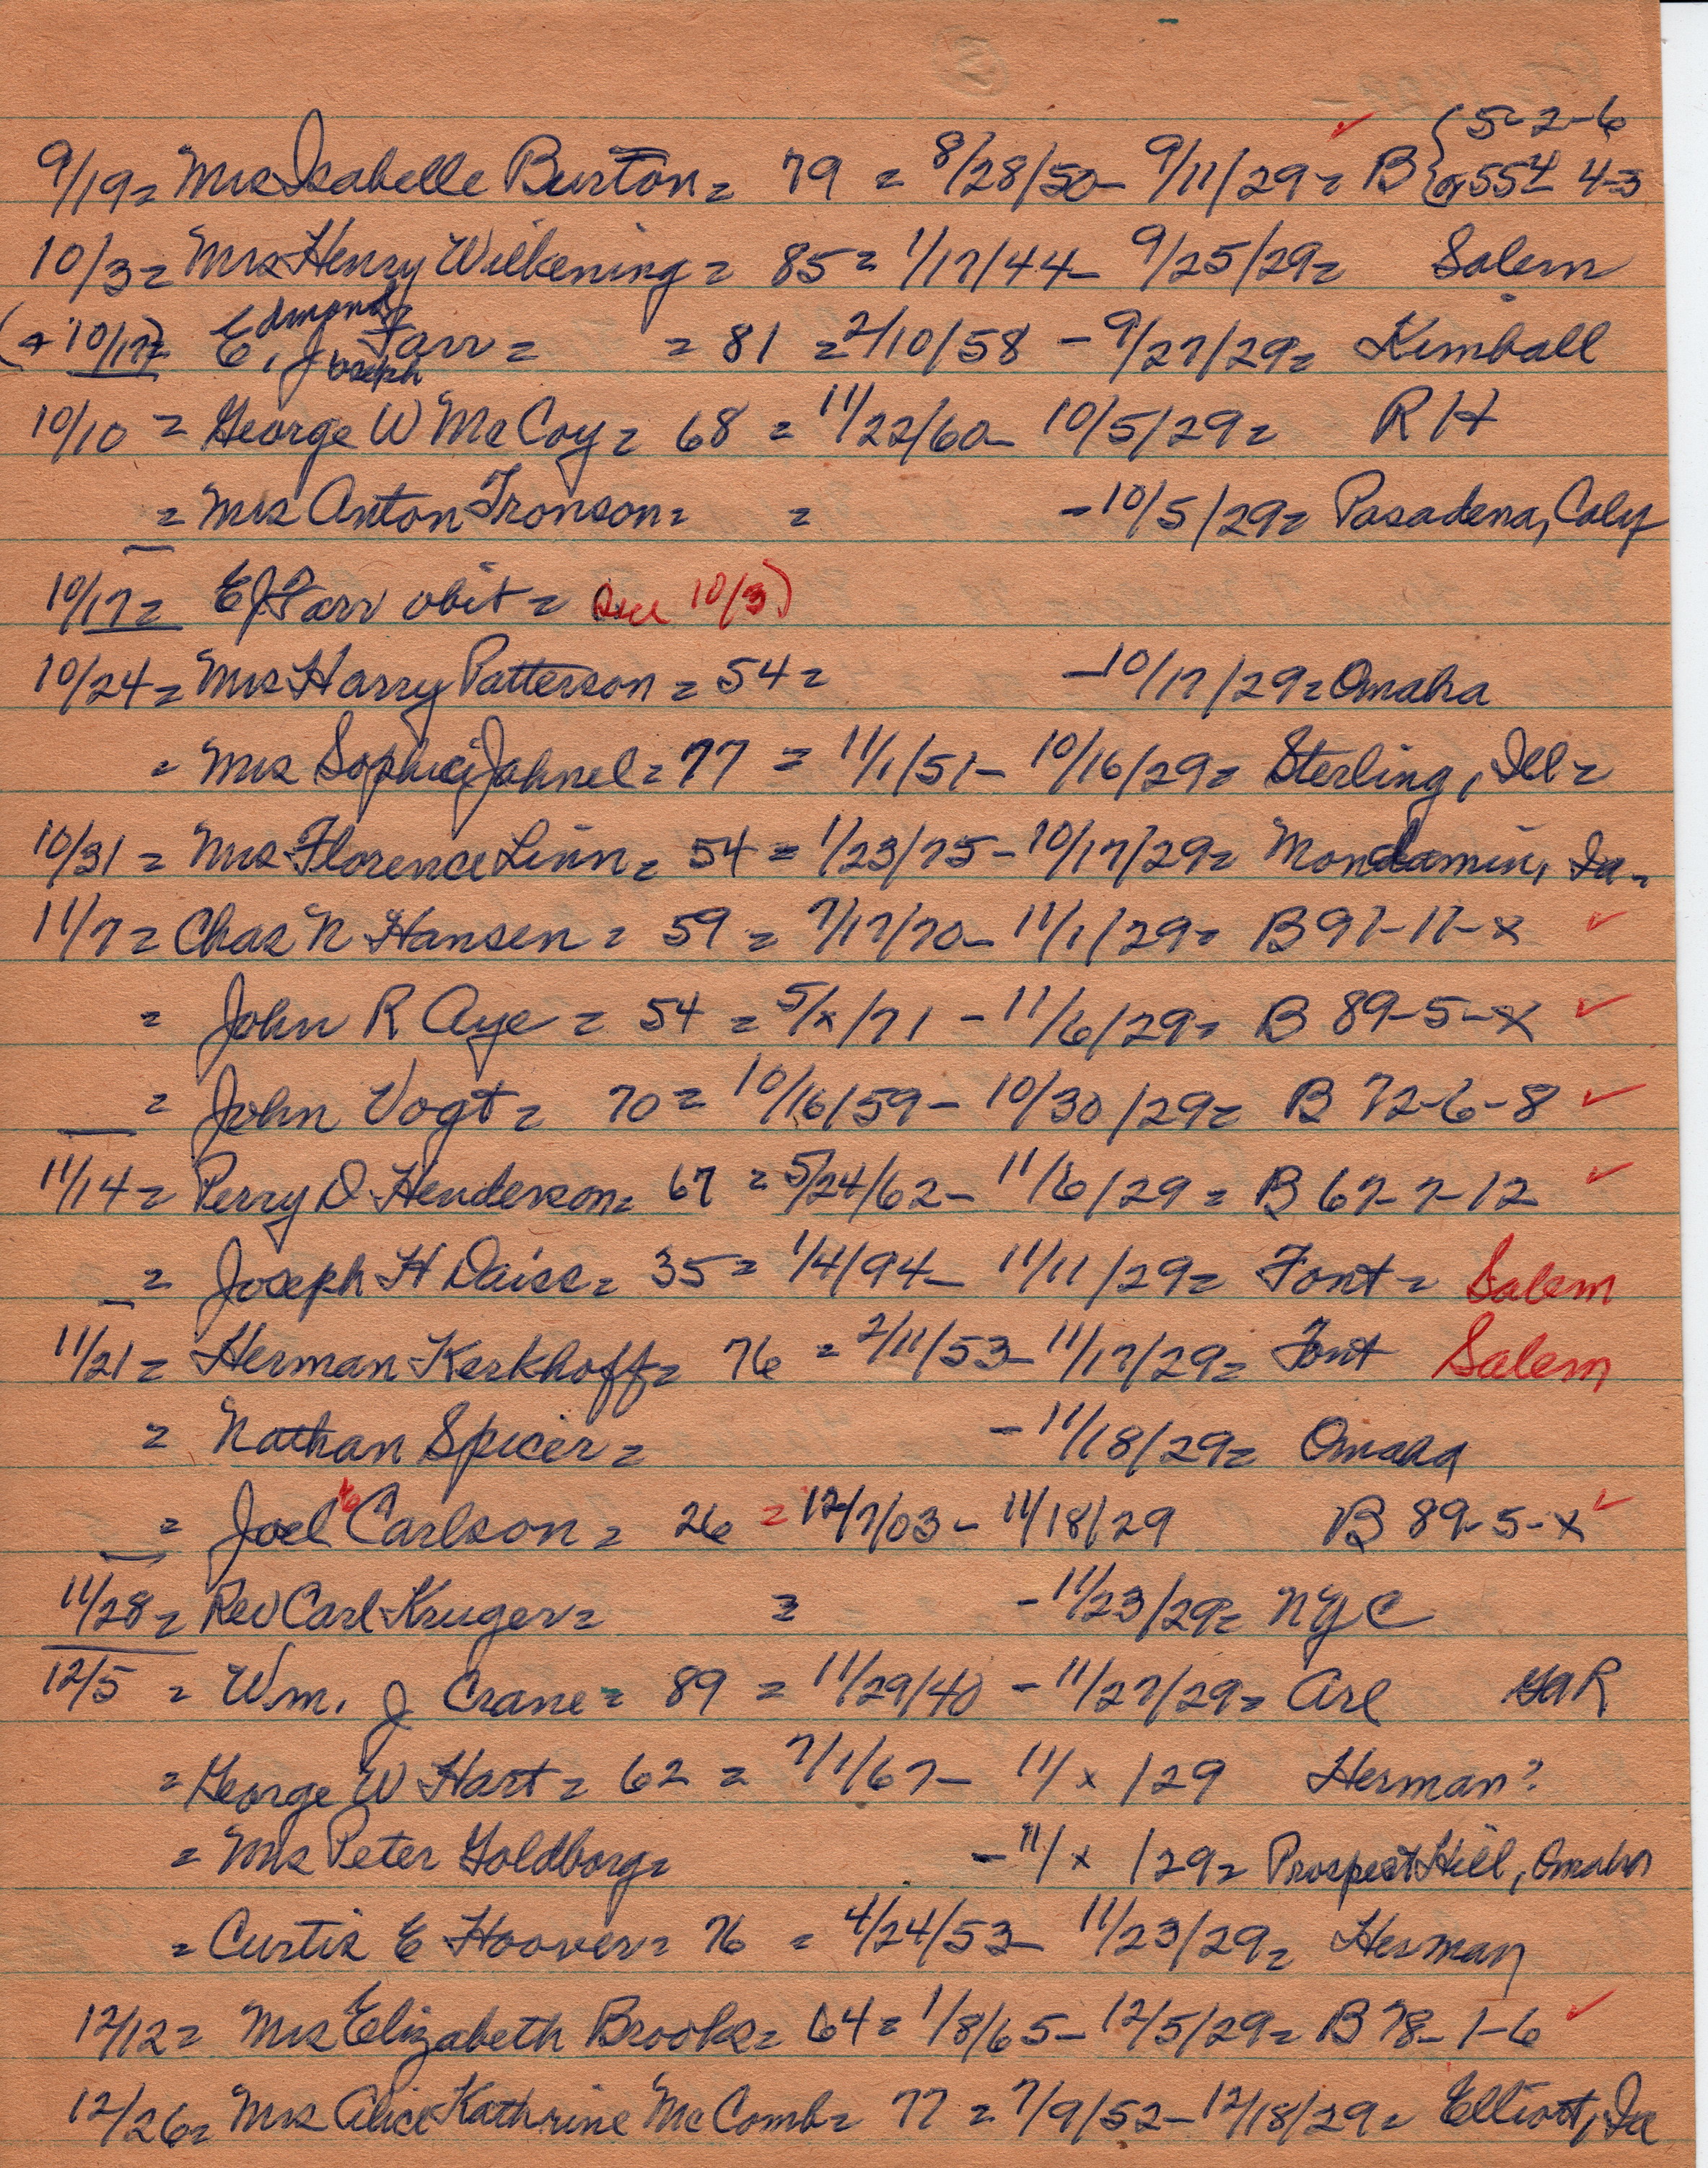 { 5-2-6
9/19 = Mrs Isabelle Burton = 79 = 8/28/50 - 9/11/29 = B { or 55 4-3
10/3 = Mrs Henry Wilkening = 85 = 1/17/44 - 9/25/29 = Salem
Edmond
(+ 10/17) E. J. Farr = = 81 = 2/10/58 - 9/27/29 = Kimball
Joseph
10/10 = George W McCoy = 68 = 11/22/60 - 10/5/29 = R H
= Mrs Anton Tronson = = - 10/5/29 = Pasadena, Caly
10/17 = E J Farr obit = see 10/3)
10/24 = Mrs Harry Patterson = 54 = - 10/17/29 = Omaha
= Mrs Sophie Jahnel = 77 = 11/1/51 - 10/16/29 = Sterling, Ill =
10/31 = Mrs Florence Linn = 54 = 1/23/75 - 10/17/29 = Mondamin, Ia -
11/7 = Chas N Hansen = 59 = 7/17/70 - 11/1/29 = B 97-11-x ✓
= John R Aye = 54 = 5/x/71 - 11/6/29 = B 89-5-x ✓
= John Vogt = 70 = 10/16/59 - 10/30/29 = B 72-6-8 ✓
11/14 = Perry D Henderson = 67 = 5/24/62 - 11/6/29 = B 67-7-12 ✓
= Joseph H Daiss = 35 = 1/4/94 - 11/11/29 = Font = Salem
11/21 = Herman Kerkhoff = 76 = 2/11/53 - 11/17/29 = Font Salem
= Nathan Spicer = - 11/18/29 = Omaha
= Joel Carlson = 26 = 12/7/03 - 11/18/29 B 89-5-x ✓
11/28 = Rev Carl Kruger = = - 11/23/29 = NYC
12/5 = Wm. J Crane = 89 = 11/29/40 - 11/27/29 = Arl GAR
= George W Hart = 62 = 7/1/67 - 11/x/29 Herman?
= Mrs Peter Goldborg = - 11/x/29 = Prospect Hill, Omaha
= Curtis E Hoover = 76 = 4/24/53 - 11/23/29 = Herman
12/12 = Mrs Elizabeth Brooks = 64 = 1/8/65 - 12/5/29 = B 78-1-6 ✓
12/26 = Mrs Alice Kathrine McComb = 77 = 7/9/52 - 12/18/29 = Elliott, Ia